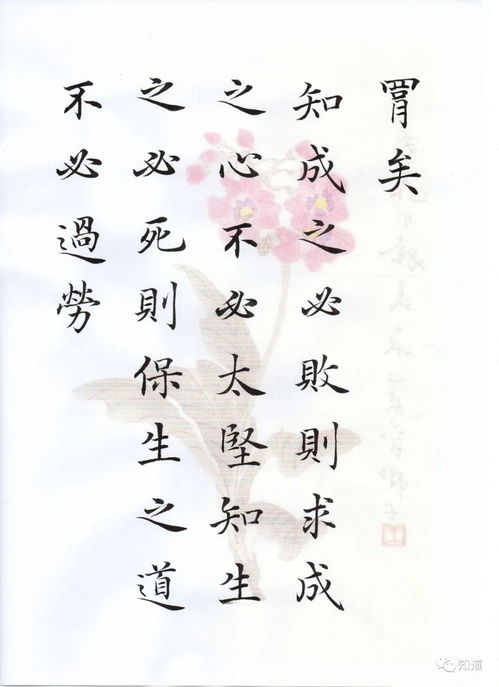 罥矣
知成之必敗則求成
之心不必太堅知生
之必死則保生之道
不必過勞
知道